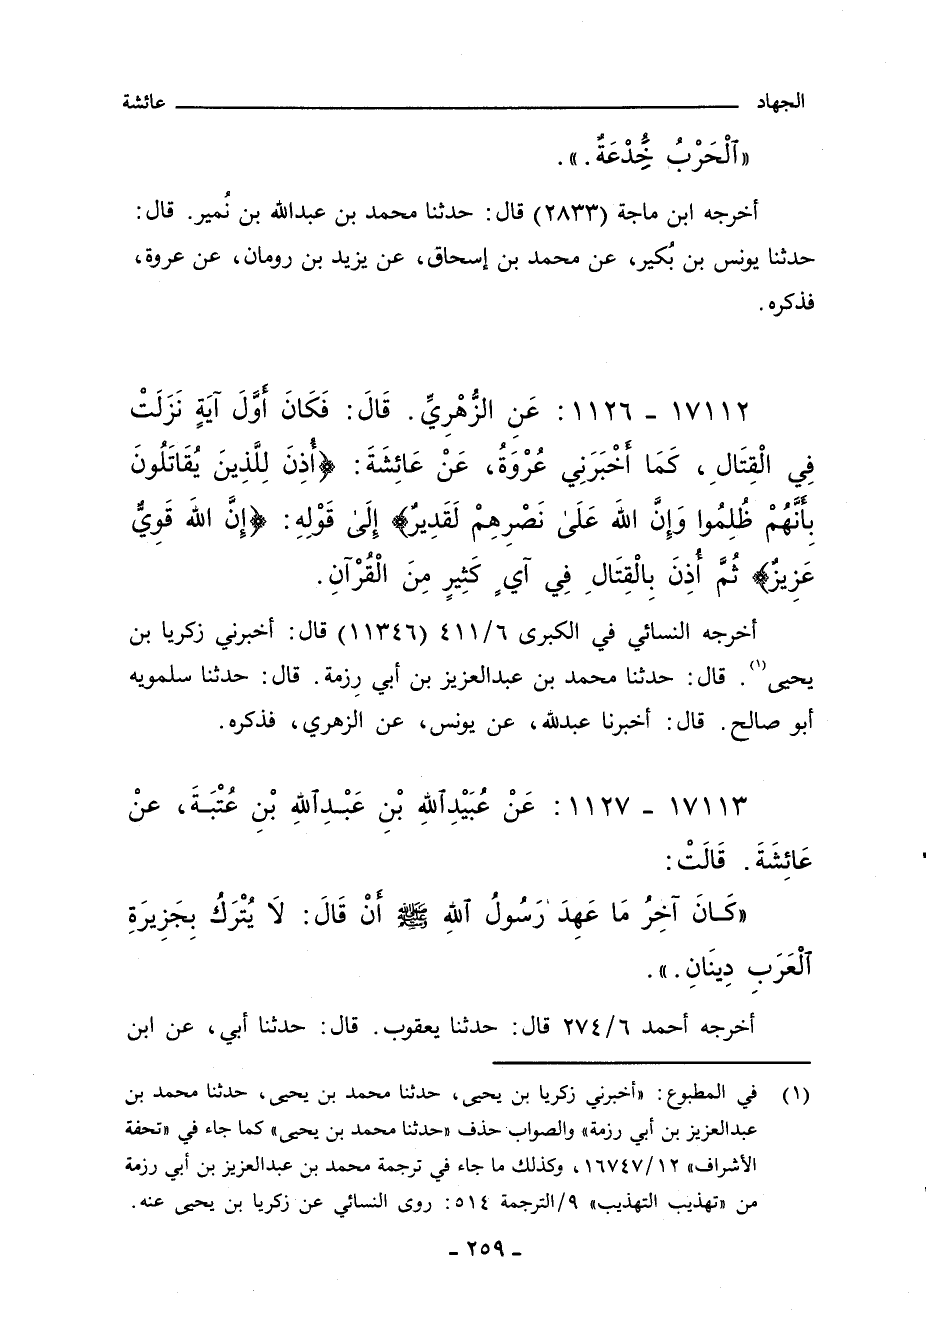 الجهاد عائشة
«ٱلْحَرْبُ خُدْعَةٌ.».
أخرجه ابن ماجة (٢٨٣٣) قال: حدثنا محمد بن عبدالله بن نُمير. قال:
حدثنا يونس بن بُكير، عن محمد بن إسحاق، عن يزيد بن رومان، عن عروة،
فذكره.
١٧١١٢ - ١١٢٦: عَنِ الزُّهْرِيِّ. قَالَ: فَكَانَ أَوَّلَ آيَةٍ نَزَلَتْ
فِي الْقِتَالِ، كَمَا أَخْبَرَنِي عُرْوَةُ، عَنْ عَائِشَةَ: ﴿أُذِنَ لِلَّذِينَ يُقَاتَلُونَ
بِأَنَّهُمْ ظُلِمُوا وَإِنَّ اللهَ عَلَىٰ نَصْرِهِمْ لَقَدِيرٌ﴾ إِلَىٰ قَوْلِهِ: ﴿إِنَّ اللهَ قَوِيٌّ
عَزِيزٌ﴾ ثُمَّ أُذِنَ بِالْقِتَالِ فِي آيٍ كَثِيرٍ مِنَ الْقُرْآنِ.
أخرجه النسائي في الكبرى ٤١١/٦ (١١٣٤٦) قال: أخبرني زكريا بن
يحيى(١). قال: حدثنا محمد بن عبدالعزيز بن أبي رزمة. قال: حدثنا سلمويه
أبو صالح. قال: أخبرنا عبدلله، عن يونس، عن الزهري، فذكره.
١٧١١٣ - ١١٢٧: عَنْ عُبَيْدِٱللهِ بْنِ عَبْدِٱللهِ بْنِ عُتْبَةَ، عنْ
عَائِشَةَ. قَالَتْ:
«كَانَ آخِرُ مَا عَهِدَ رَسُولُ ٱللهِ ﷺ أَنْ قَالَ: لَا يُتْرَكُ بِجَزِيرَةِ
ٱلْعَرَبِ دِينَانِ.».
أخرجه أحمد ٢٧٤/٦ قال: حدثنا يعقوب. قال: حدثنا أبي، عن ابن
(١) في المطبوع: «أخبرني زكريا بن يحيى، حدثنا محمد بن يحيى، حدثنا محمد بن
عبدالعزيز بن أبي رزمة» والصواب حذف «حدثنا محمد بن يحيى» كما جاء في «تحفة
الأشراف» ١٦٧٤٧/١٢، وكذلك ما جاء في ترجمة محمد بن عبدالعزيز بن أبي رزمة
من «تهذيب التهذيب» ٩/الترجمة ٥١٤: روى النسائي عن زكريا بن يحيى عنه.
- ٢٥٩ -